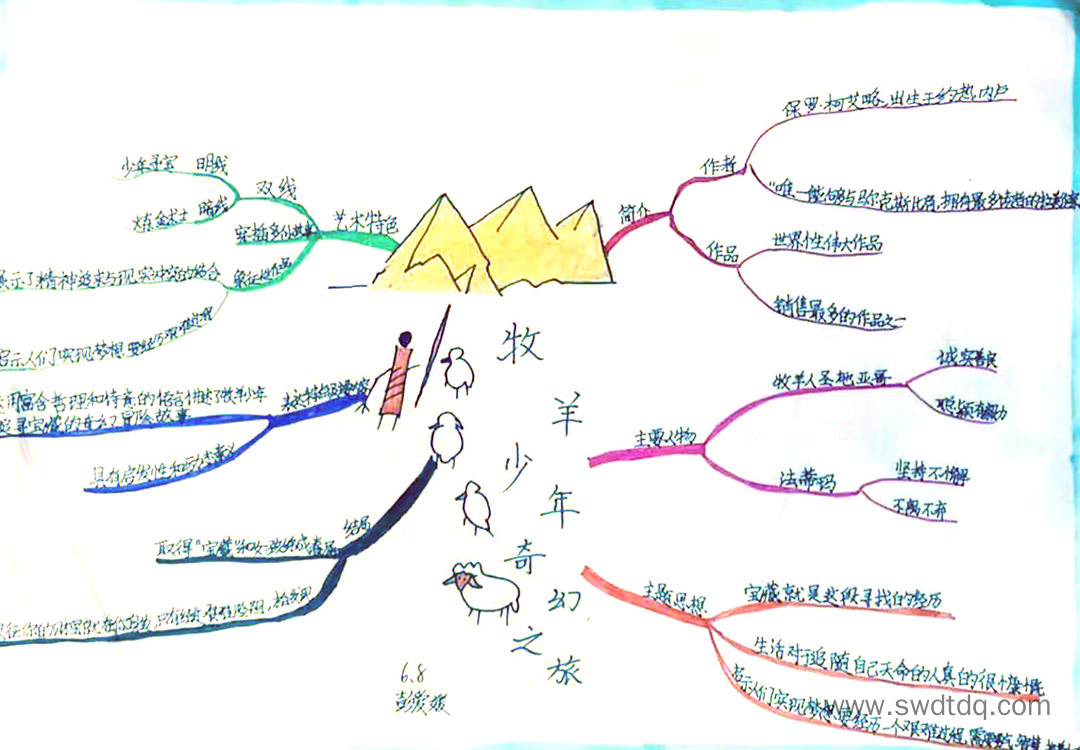 牧羊少年奇幻之旅
6.8
简介
作者
保罗·柯艾略,出生于约热内卢
"唯一能够与马尔克斯比肩,拥有最多读者的拉美作家
作品
世界性伟大作品
销售最多的作品之一
主要人物
牧羊人圣地亚哥
诚实善良
聪颖有毅力
法蒂玛
坚持不懈
不离不弃
主题思想
宝藏就是这段寻找的经历
生活对于追随自己天命的人真的很慷慨
启示人们实现梦想要经历一个艰难过程,需要勇气
艺术特色
双线
少年寻宝 明线
炼金术士 暗线
穿插多个故事
象征性作品
展示了精神追求与现实中实的结合
启示人们实现梦想要经历艰难过程
用富含哲理和诗意的语言讲述了牧羊少年
寻宝藏的奇幻冒险故事
具有启发性和励志意义
结局
取得"宝藏"和女孩终成眷属
www.swdtdq.com